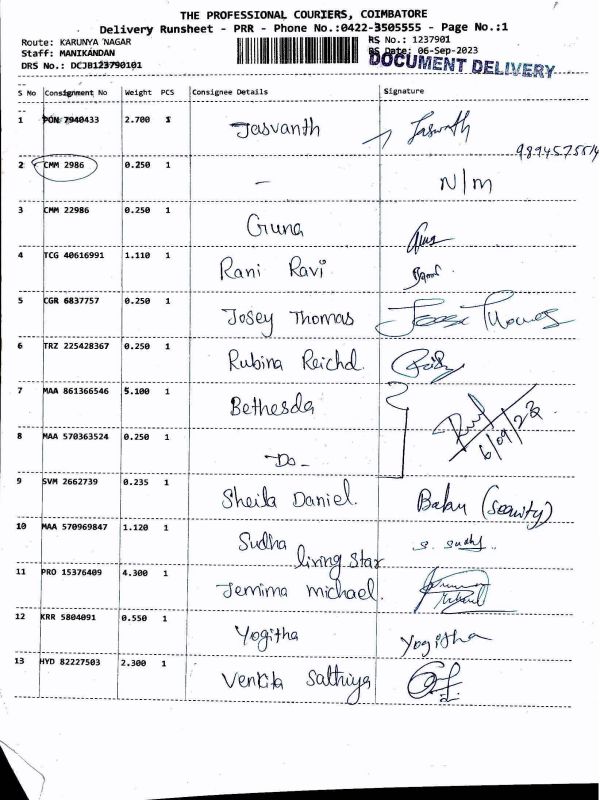 THE PROFESSIONAL COURIERS, COIMBATORE
Delivery Runsheet - PRR - Phone No.:0422-3505555 - Page No.:1
Route: KARUNYA NAGAR
RS No.: 1237901
Staff: MANIKANDAN
RS Date: 06-Sep-2023
DRS No.: DCJB123790101
DOCUMENT DELIVERY
S No Consignment No Weight PCS Consignee Details Signature
1 PON 7940433 2.700 1 Jasvanth Jaswath
9894575514
2 CMM 2986 0.250 1 - N/m
3 CMM 22986 0.250 1 Guna
4 TCG 40616991 1.110 1 Rani Ravi
5 CGR 6837757 0.250 1 Josey Thomas
6 TRZ 225428367 0.250 1 Rubina Reichd.
7 MAA 861366546 5.100 1 Bethesda
6/09/23
8 MAA 570363524 0.250 1 -Do-
9 SVM 2662739 0.235 1 Sheila Daniel. Babu (Security)
10 MAA 570969847 1.120 1 Sudha S. Sudha
living Star
11 PRO 15376409 4.300 1 Jemima michael.
12 KRR 5804091 0.550 1 Yogitha Yogitha
13 HYD 82227503 2.300 1 Venkita Sathiya